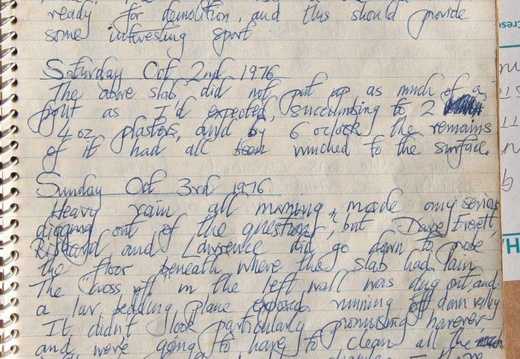 ready for demolition, and this should provide
some interesting sport
Saturday Oct 2nd 1976
The above slab did not put up as much of a
fight as I'd expected, succumbing to 2
4oz plasters, and by 6 o'clock the remains
of it had all been winched to the surface.
Sunday Oct 3rd 1976
Heavy rain all morning made any serious
digging out of the question, but Dave Froett
and Lawrence did go down to probe
the floor beneath where the slab had lain
The cross off in the left wall was dug out and
a low bedding plane exposed running off down valley
It didn't look particularly promising however
and we're going to have to clean all the